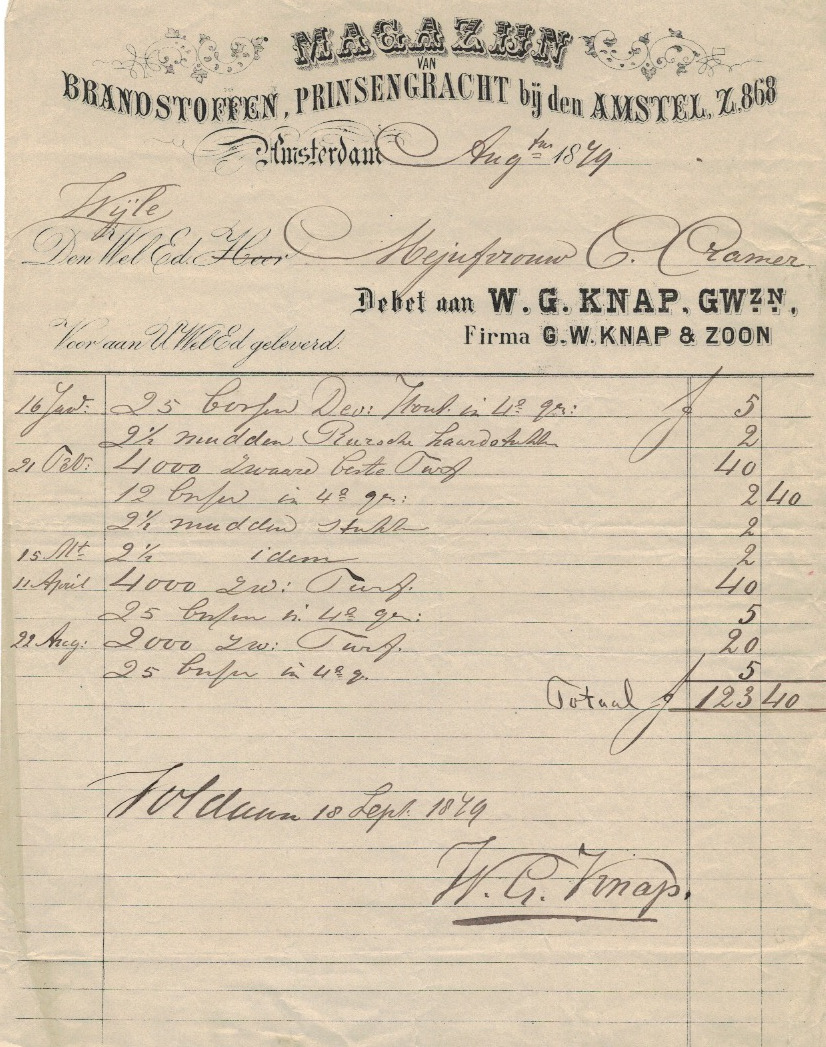 MAGAZIJN
VAN
BRANDSTOFFEN, PRINSENGRACHT bij den AMSTEL, Z, 868
Amsterdam Augtus 1879
Wijle
Den Wel Ed. Heer Mejufvrouw C. Cramer
Debet aan W. G. KNAP, GWZN,
Voor aan U Wel Ed geleverd. Firma G. W. KNAP & ZOON
16 Jan: 25 bossen Den: Hout in 4e gr: f 5
2½ mudden Ruhrsche haardstukken 2
21 Feb: 4000 zwaare beste Turf 40
12 bossen in 4e gr: 2 40
2½ mudden stukk 2
15 Mt 2½ idem 2
11 April 4000 zw: Turf. 40
25 bossen in 4e gr: 5
22 Aug: 2000 zw: Turf. 20
25 bossen in 4e g. 5
Totaal f 123 40
Voldaan 18 Sept. 1879
W. G. Knap.